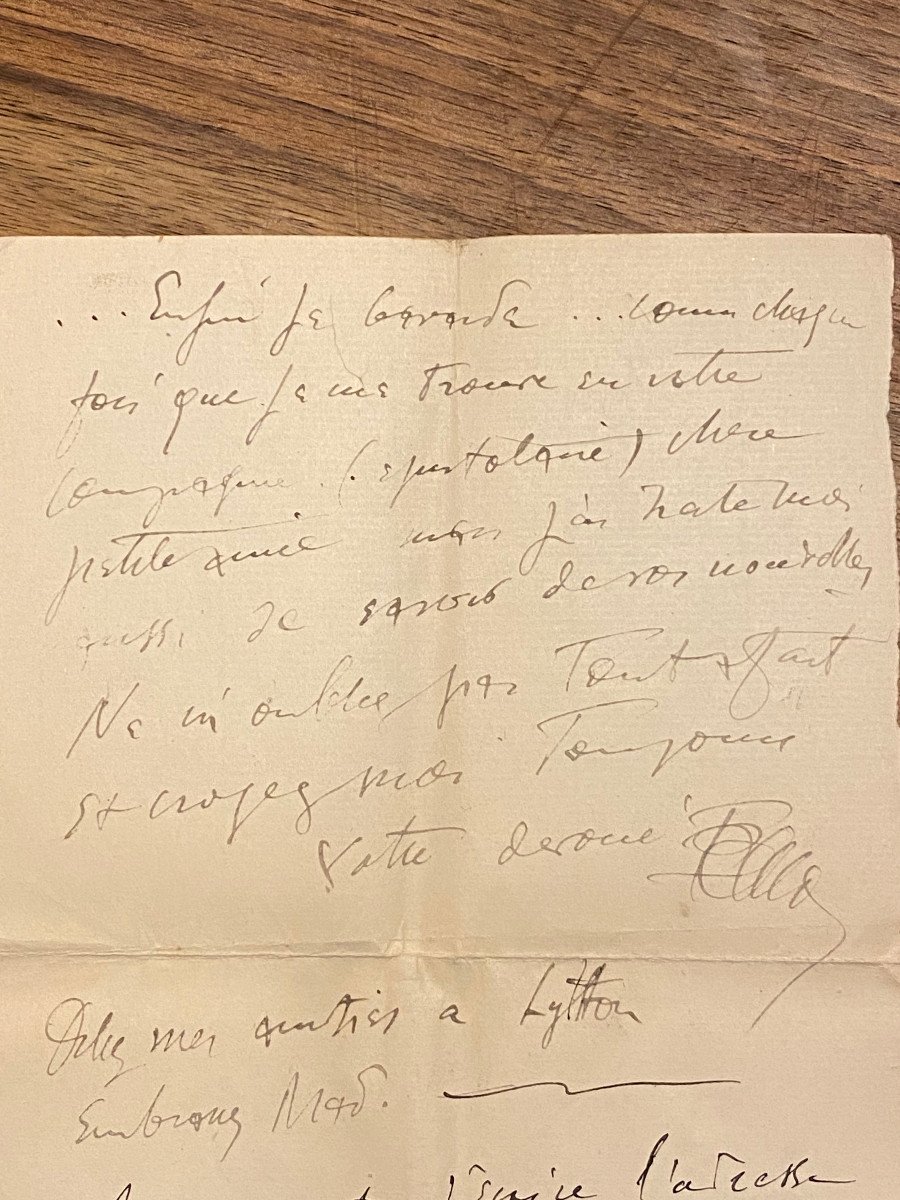 ... Enfin je bavarde ... comme chaque
fois que je me trouve en votre
compagnie (epistolaire) chere
petite amie mais j'ai hate moi
aussi de savoir de vos nouvelles
Ne m'oubliez pas Tout a fait
et croyez moi Toujours
Votre devoué
mes amitiés a Lytton
Embrassez Mad.
l'adresse